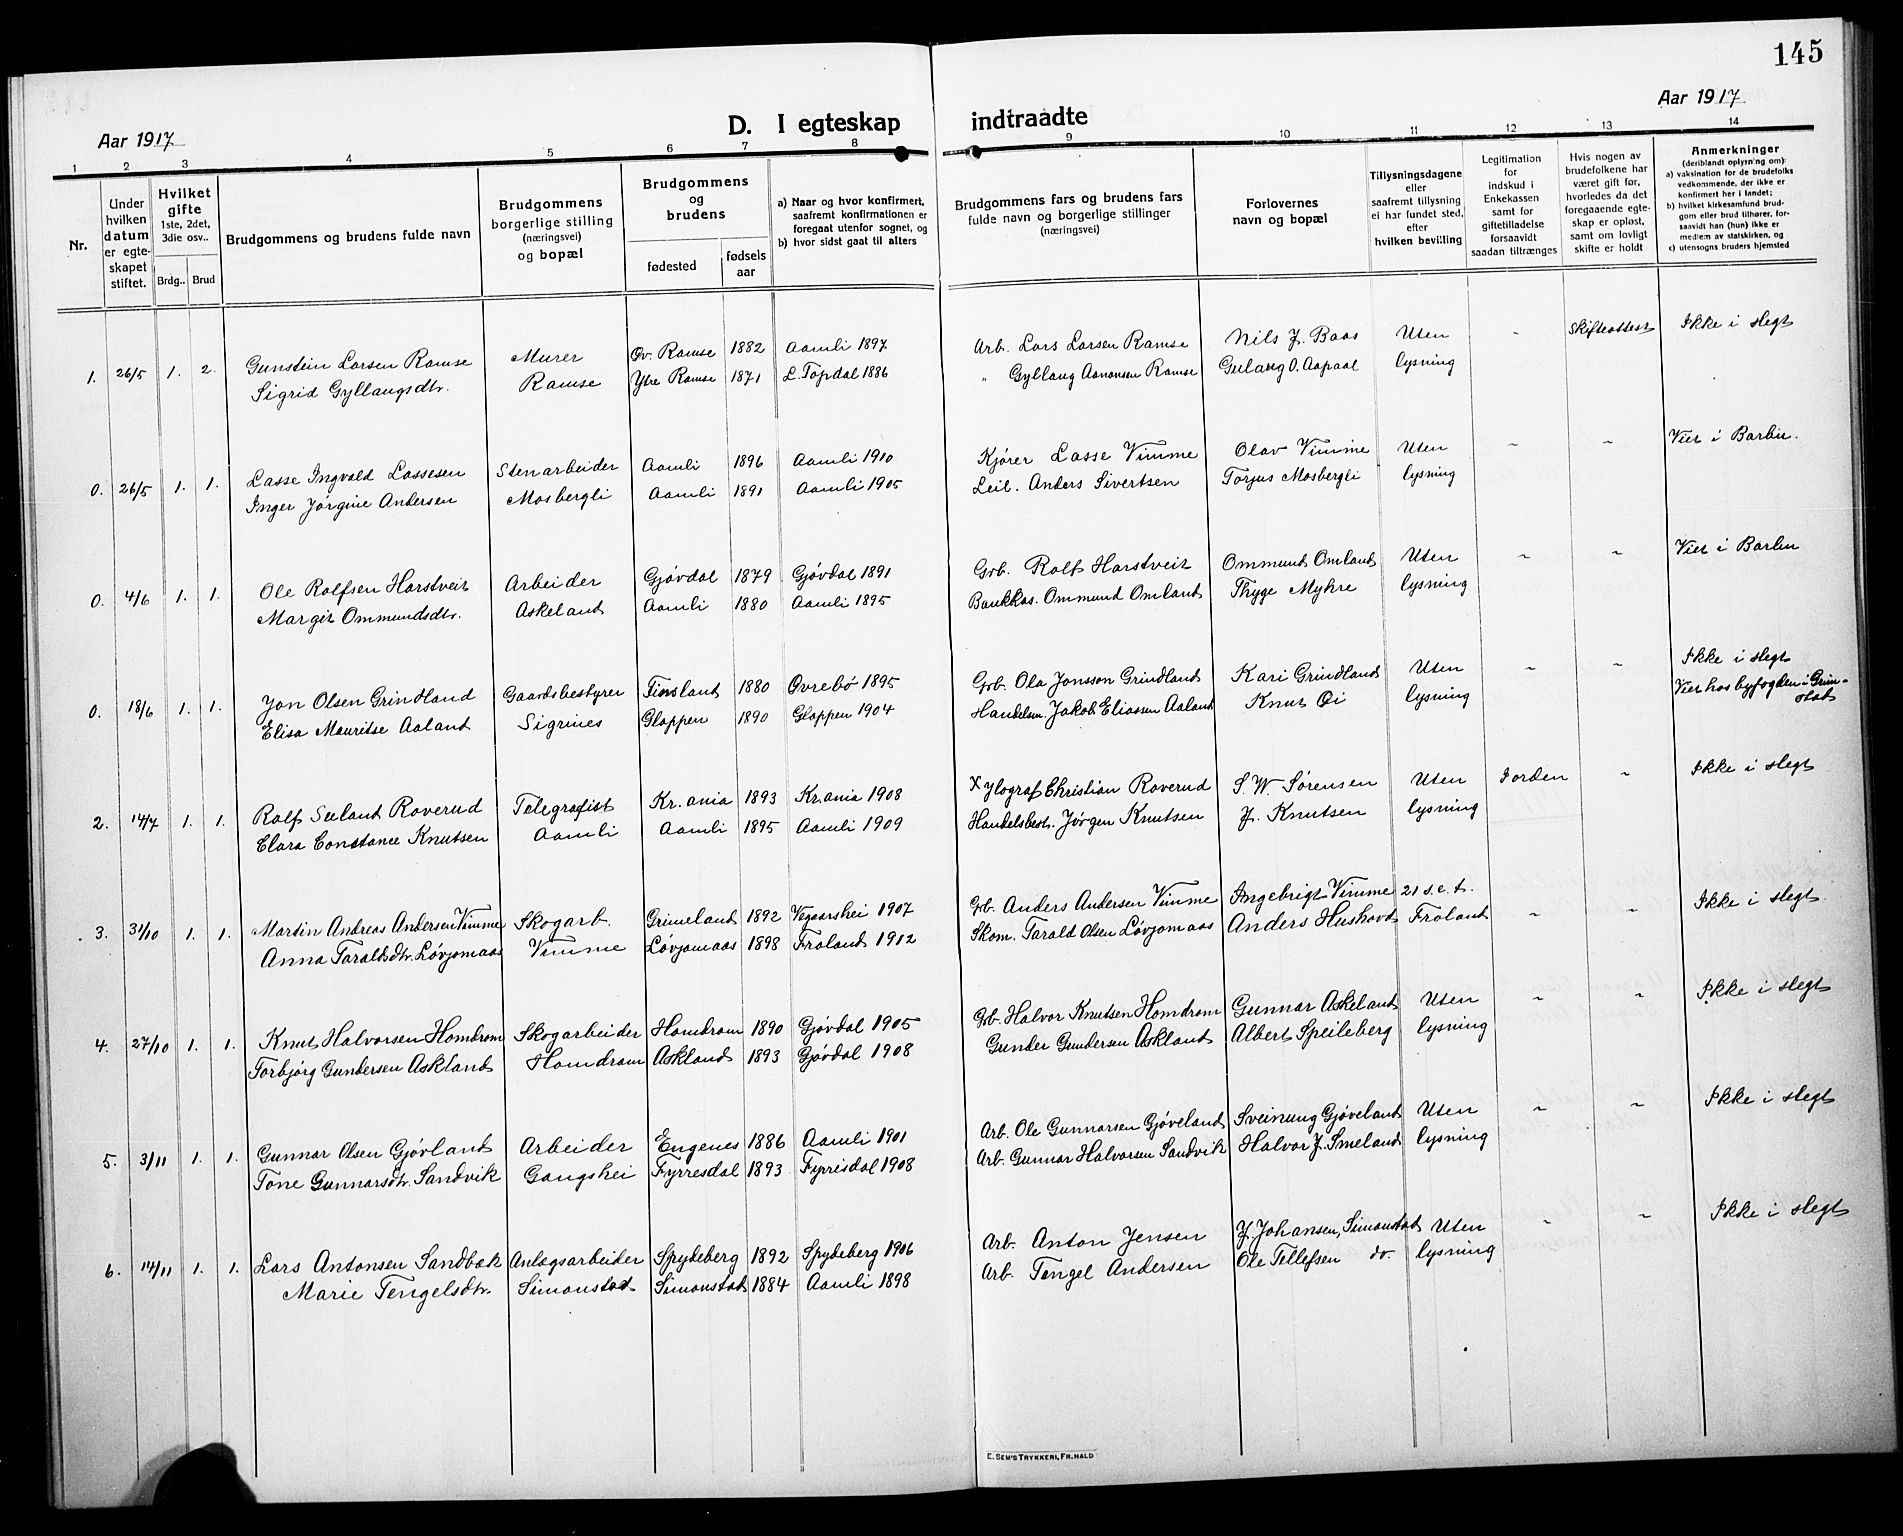 145
Aar 1917
D. I egteskap indtraadte
Aar 1917
1 2 3 4 5 6 7 8 9 10 11 12 13 14
Nr.
Under hvilken datum er egteskapet stiftet.
Hvilket gifte
1ste, 2det, 3die osv..
Brdg.. Brud
Brudgommens og brudens fulde navn
Brudgommens borgerlige stilling (næringsvei) og bopæl
Brudgommens og brudens
fødested
fødselsaar
a) Naar og hvor konfirmert, saafremt konfirmationen er foregaat utenfor sognet, og
b) hvor sidst gaat til alters
Brudgommens fars og brudens fars fulde navn og borgerlige stillinger (næringsvei)
Forlovernes navn og bopæl
Tillysningsdagene eller saafremt tillysning ei har fundet sted, efter hvilken bevilling
Legitimation for indskud i Enkekassen samt for giftetilladelse forsaavidt saadan tiltrænges
Hvis nogen av brudefolkene har været gift før, hvorledes da det foregaaende egteskap er opløst, samt om lovligt skifte er holdt
Anmerkninger
(deriblandt oplysning om):
a) vaksination for de brudefolks vedkommende, der ikke er konfirmert her i landet;
b) hvilket kirkesamfund brudgom eller brud tilhører, forsaavidt han (hun) ikke er medlem av statskirken, og
c) utensogns bruders hjemsted
1. 26/5 1. 2. Gunstein Larsen Ramse Murer Øv. Ramse 1882 Aamli 1897 Arb. Lars Larsen Ramse Nils J. Baas Uten - Skifteattest Ikke i slegt
Sigrid Gyllaugsdtr. Ramse Ytre Ramse 1871 L. Topdal 1886 " Gyllaug Aanonsen Ramse Gulaug O. Aapaal lysning
0. 26/5 1. 1. Lasse Ingvald Lassesen Stenarbeider Aamli 1896 Aamli 1910 Kjører Lasse Vimme Olav Vimme Uten - - Viet i Barbu.
Inger Jørgine Andersen Mosbergli Aamli 1891 Aamli 1905 Leil. Anders Sivertsen Torjus Mosbergli lysning
0. 4/6 1. 1. Ole Rolfsen Harstveit Arbeider Gjøvdal 1879 Gjøvdal 1891 Grb. Rolf Harstveit Ommund Omland Uten - - Viet i Barbu
Margit Ommundsdtr. Askeland Aamli 1880 Aamli 1895 Bankkas. Ommund Omland Thyge Myhre lysning
0. 18/6 1. 1. Jon Olsen Grindland Gaardsbestyrer Finsland 1880 Øvrebø 1895 Grb. Ola Jonsson Grindland Kari Grindland Uten - - Ikke i slegt
Elisa Mauritse Aaland Sigrines Gloppen 1890 Gloppen 1904 Handelsm. Jakob Eliassen Aaland Knut Øi lysning Viet hos byfogden i Grimstad
2. 14/7 1. 1. Rolf Seeland Roverud Telegrafist Kr.ania 1893 Kr.ania 1908 Xylograf Christian Roverud S. W. Sørensen Uten Jorden - Ikke i slegt
Clara Constance Knutsen Aamli Aamli 1895 Aamli 1909 Handelsbest. Jørgen Knutsen J. Knutsen lysning
3. 31/10 1. 1. Martin Andreas Andersen Vimme Skogarb. Grimeland 1892 Vegaarshei 1907 Grb. Anders Andersen Vimme Ingebrigt Vimme 21 s.e.t. - - Ikke i slegt
Anna Taraldsdtr. Løvjomaas Vimme Løvjomaas 1898 Froland 1912 Skom. Tarald Olsen Løvjomaas Anders Hushovd Froland
4. 27/10 1. 1. Knut Halvorsen Homdrom Skogarbeider Homdrom 1890 Gjøvdal 1905 Grb. Halvor Knutsen Homdrom Gunnar Askeland Uten - - Ikke i slegt
Torbjørg Gundersen Askland Homdrom Askland 1893 Gjøvdal 1908 Gunder Gundersen Askland Albert Speileberg lysning
5. 3/11 1. 1. Gunnar Olsen Gjøvland Arbeider Engenes 1886 Aamli 1901 Arb. Ole Gunnarsen Gjøveland Sveinung Gjøveland Uten - - Ikke i slegt
Tone Gunnarsdtr. Sandvik Gangshei Fyrresdal 1893 Fyrrisdal 1908 Arb. Gunnar Halvorsen Sandvik Halvor J. Smeland lysning
6. 14/11 1. 1. Lars Antonsen Sandbæk Anlægsarbeider Spydeberg 1892 Spydeberg 1906 Arb. Anton Jensen J. Johansen, Simonstad Uten - - Ikke i slegt
Marie Tengelsdtr. Simonstad Simonstad 1884 Aamli 1898 Arb. Tengel Andersen Ole Tellefsen do. lysning
E. SEM'S TRYKKERI, FR.HALD